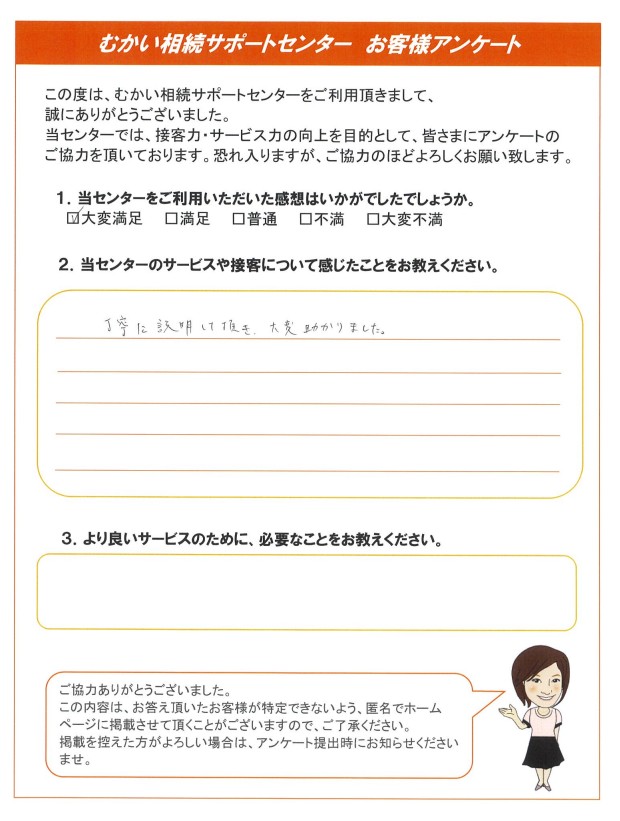 むかい相続サポートセンター お客様アンケート
この度は、むかい相続サポートセンターをご利用頂きまして、
誠にありがとうございました。
当センターでは、接客力・サービス力の向上を目的として、皆さまにアンケートの
ご協力を頂いております。恐れ入りますが、ご協力のほどよろしくお願い致します。
1. 当センターをご利用いただいた感想はいかがでしたでしょうか。
☑大変満足 □満足 □普通 □不満 □大変不満
2. 当センターのサービスや接客について感じたことをお教えください。
丁寧に説明して頂き、大変助かりました。
3. より良いサービスのために、必要なことをお教えください。
ご協力ありがとうございました。
この内容は、お答え頂いたお客様が特定できないよう、匿名でホーム
ページに掲載させて頂くことがございますので、ご了承ください。
掲載を控えた方がよろしい場合は、アンケート提出時にお知らせください
ませ。